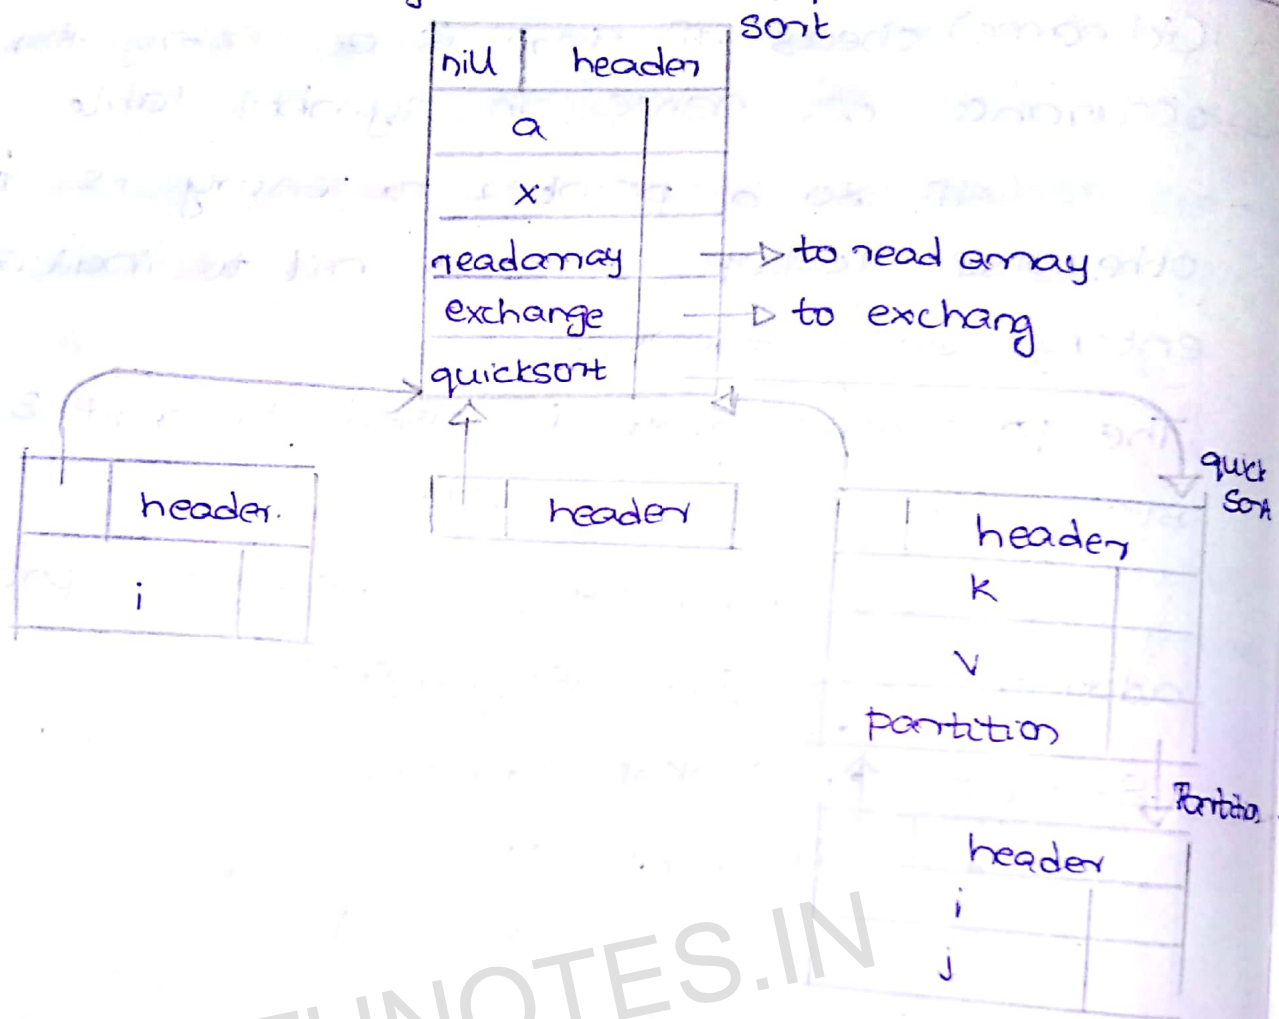 sort
nill header
a
x
readarray to read array
exchange to exchang
quicksort
header.
i
header
quick
Sort
header
k
v
partition
header
i
j